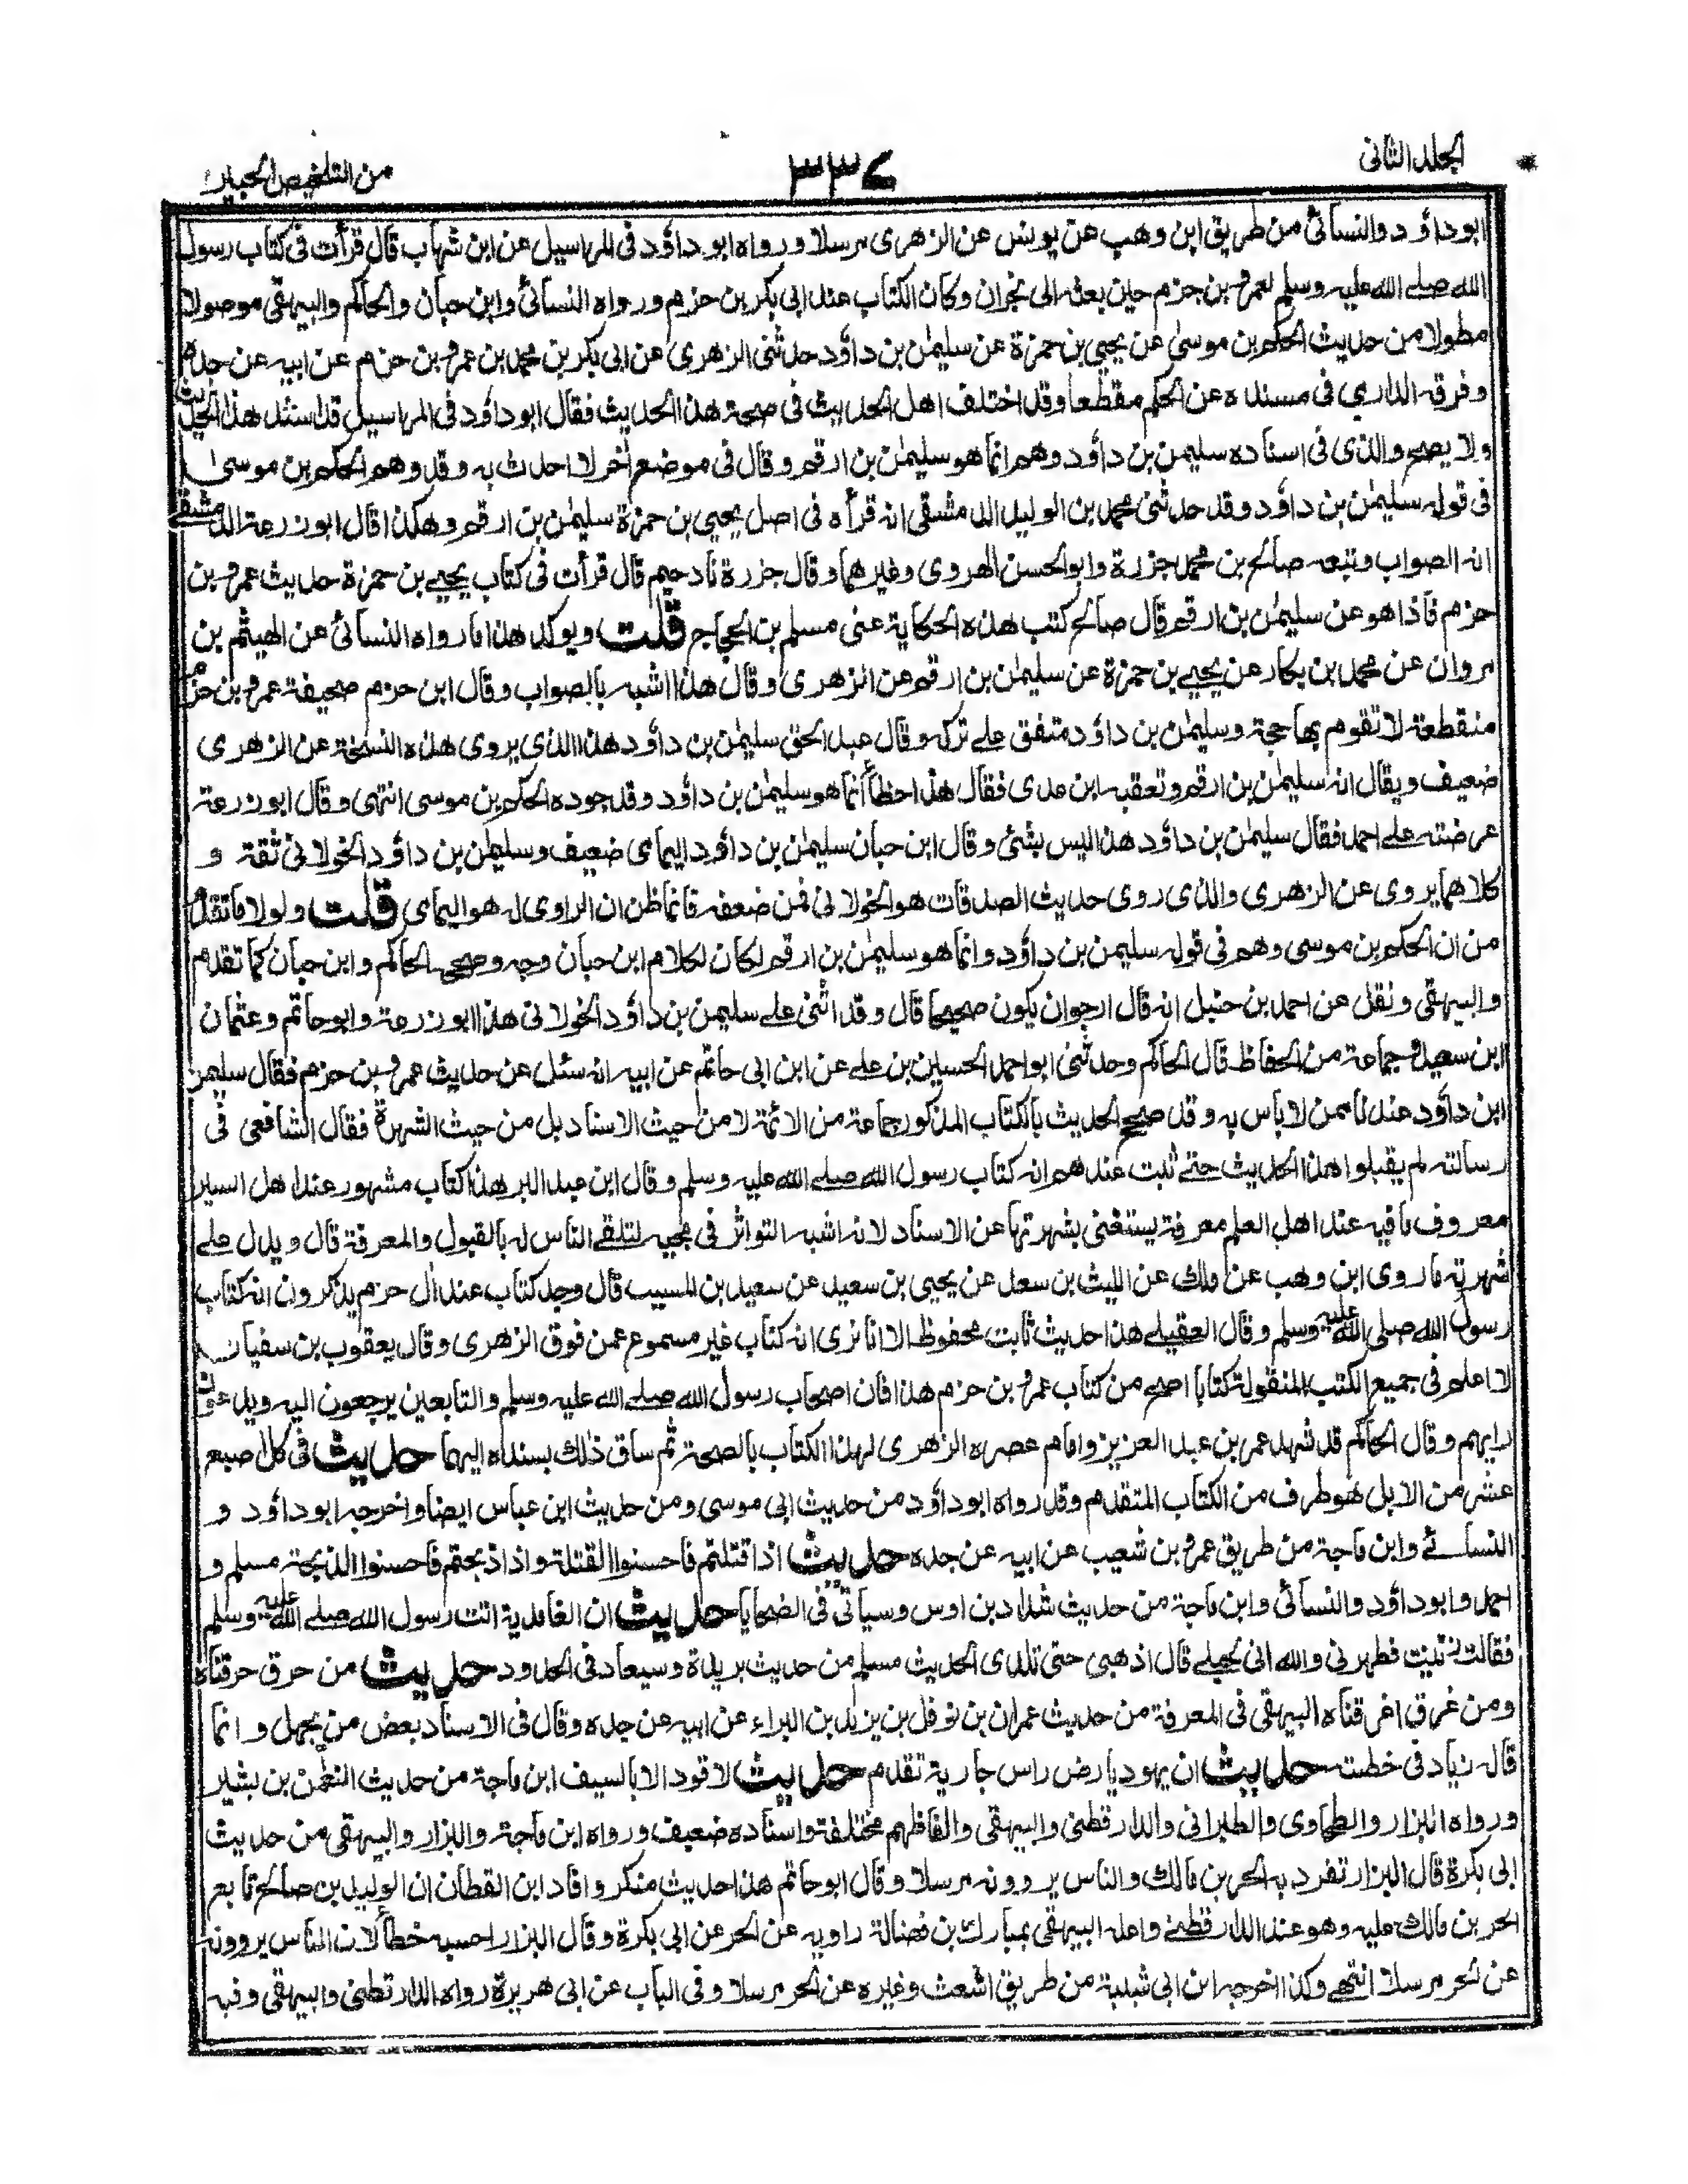 الجلد الثانى
٣٣٧
من التلخيص الحبير
ابوداؤد والنسائى من طريق ابن وهب عن يونس عن الزهرى مرسلا ورواه ابوداؤد فى المراسيل عن ابن شهاب قال قرأت فى كتاب رسول
الله صلے الله عليه وسلم لعمرو بن حزم حين بعثه الى نجران وكان الكتاب عند ابى بكر بن حزم ورواه النسائى وابن حبان والحاكم والبيهقى موصولا
مطولا من حديث الحكم بن موسىٰ عن يحيى بن حمزة عن سليمٰن بن داؤد حدثنى الزهرى عن ابى بكر بن محمد بن عمرو بن حزم عن ابيه عن جده
وفرقه الدارمي فى مسنده عن الحكم مقطعا وقد اختلف اهل الحديث فى صحة هذا الحديث فقال ابوداؤد فى المراسيل قد اسند هذا الحديث
ولا يصح والذى فى اسناده سليمن بن داؤد وهم انما هو سليمٰن بن ارقم وقال فى موضع اٰخر لا احدث به وقد وهم الحكم بن موسىٰ
فى قوله سليمٰن بن داؤد وقد حدثنى محمد بن الوليد الدمشقى انه قرأه فى اصل يحيى بن حمزة سليمٰن بن ارقم وهكذا قال ابوزرعة الدمشقے
انه الصواب وتبعه صالح بن محمد جزرة وابوالحسن الهروى وغيرهما وقال جزرة نا دحيم قال قرأت فى كتاب يحيے بن حمزة حديث عمرو بن
حزم فاذا هو عن سليمٰن بن ارقم قال صالح كتب هذه الحكاية عنى مسلم بن الحجاج قلت ويوكد هذا ما رواه النسائى عن الهيثم بن
مروان عن محمد بن بكار عن يحيے بن حمزة عن سليمٰن بن ارقم عن الزهرى وقال هذا اشبه بالصواب وقال ابن حزم صحيفة عمرو بن حزم
منقطعة لا تقوم بها حجة وسليمٰن بن داؤد متفق علے تركه وقال عبد الحق سليمٰن بن داؤد هذا الذى يروى هذه النسخة عن الزهرى
ضعيف ويقال انه سليمٰن بن ارقم وتعقبه ابن عدى فقال هذا خطأ انما هو سليمٰن بن داؤد وقد جوده الحكم بن موسى انتهى وقال ابوزرعة
عرضته علے احمد فقال سليمٰن بن داؤد هذا ليس بشئ وقال ابن حبان سليمٰن بن داؤد اليمامى ضعيف وسليمٰن بن داؤد الخولانى ثقة و
كلاهما يروى عن الزهرى والذى روى حديث الصدقات هو الخولانى فمن ضعفه فانما ظن ان الراوى له هو اليمامى قلت ولولا ما تقدم
من ان الحكم بن موسى وهم فى قوله سليمن بن داؤد وانما هو سليمٰن بن ارقم لكان لكلام ابن حبان وجه وصححه الحاكم وابن حبان كما تقدم
والبيهقى ونقل عن احمد بن حنبل انه قال ارجو ان يكون صحيحا قال وقد اثنى علے سليمن بن داؤد الخولانى هذا ابوزرعة وابوحاتم وعثمان
ابن سعيد وجماعة من الحفاظ قال الحاكم وحدثنى ابو احمد الحسين بن علے عن ابن ابى حاتم عن ابيه انه سئل عن حديث عمرو بن حزم فقال سليمن
ابن داؤد عندنا ممن لا باس به وقد صحح الحديث بالكتاب المذكور جماعة من الائمة لا من حيث الاسناد بل من حيث الشهرة فقال الشافعى فى
رسالته لم يقبلوا هذا الحديث حتے ثبت عندهم انه كتاب رسول الله صلے الله عليه وسلم وقال ابن عبد البر هذا كتاب مشهور عند اهل السير
معروف ما فيه عند اهل العلم معرفة يستغنى بشهرتها عن الاسناد لانه اشبه التواتر فى مجيه لتلقے الناس له بالقبول والمعرفة قال ويدل علے
شهرته ما روى ابن وهب عن ملك عن الليث بن سعد عن يحيى بن سعيد عن سعيد بن المسيب قال وجد كتاب عند اٰل حزم يذكرون انه كتاب
رسول الله صلى الله عليه وسلم وقال العقيلے هذا حديث ثابت محفوظ الا انا نرى انه كتاب غير مسموع عمن فوق الزهرى وقال يعقوب بن سفيان
لا اعلم فى جميع الكتب المنقولة كتابا اصح من كتاب عمرو بن حزم هذا فان اصحاب رسول الله صلے الله عليه وسلم والتابعين يرجعون اليه ويدعون
رايهم وقال الحاكم قد شهد عمر بن عبد العزيز وامام عصره الزهرى لهذا الكتاب بالصحة ثم ساق ذلك بسنده اليهما حديث فى كل اصبع
عشر من الابل هو طرف من الكتاب المتقدم وقد رواه ابوداؤد من حديث ابى موسى ومن حديث ابن عباس ايضا واخرجه ابوداؤد و
النسائے وابن ماجة من طريق عمرو بن شعيب عن ابيه عن جده حديث اذا قتلتم فاحسنوا القتلة واذا ذبحتم فاحسنوا الذبحة مسلم و
احمد وابوداؤد والنسائى وابن ماجة من حديث شداد بن اوس وسياتى فى الضحايا حديث ان الغامدية اتت رسول الله صلے الله عليه وسلم
فقالت زنيت فطهرنى والله انى لحبلے قال اذهبى حتى تلدى الحديث مسلم من حديث بريدة وسيعاد فى الحدود حديث من حرق حرقناه
ومن غرق اغرقناه البيهقى فى المعرفة من حديث عمران بن نوفل بن يزيد بن البراء عن ابيه عن جده وقال فى الاسناد بعض من يجهل وانما
قاله زياد فى خطبته حديث ان يهوديا رض راس جارية تقدم حديث لا قود الا بالسيف ابن ماجة من حديث النعمٰن بن بشير
ورواه البزار والطحاوى والطبرانى والدارقطنى والبيهقى والفاظهم مختلفة واسناده ضعيف ورواه ابن ماجة والبزار والبيهقى من حديث
ابى بكرة قال البزار تفرد به الحر بن مالك والناس يروونه مرسلا وقال ابوحاتم هذا حديث منكر وافاد ابن القطان ان الوليد بن صالح تابع
الحر بن مالك عليه وهو عند الدارقطنے واعله البيهقى بمبارك بن فضالة راويه عن الحر عن ابى بكرة وقال البزار احسبه خطأ لان الناس يروونه
عن الحر مرسلا انتهے وكذا اخرجه ابن ابى شيبة من طريق اشعث وغيره عن الحر مرسلا وفى الباب عن ابى هريرة رواه الدارقطنى والبيهقى وفيه